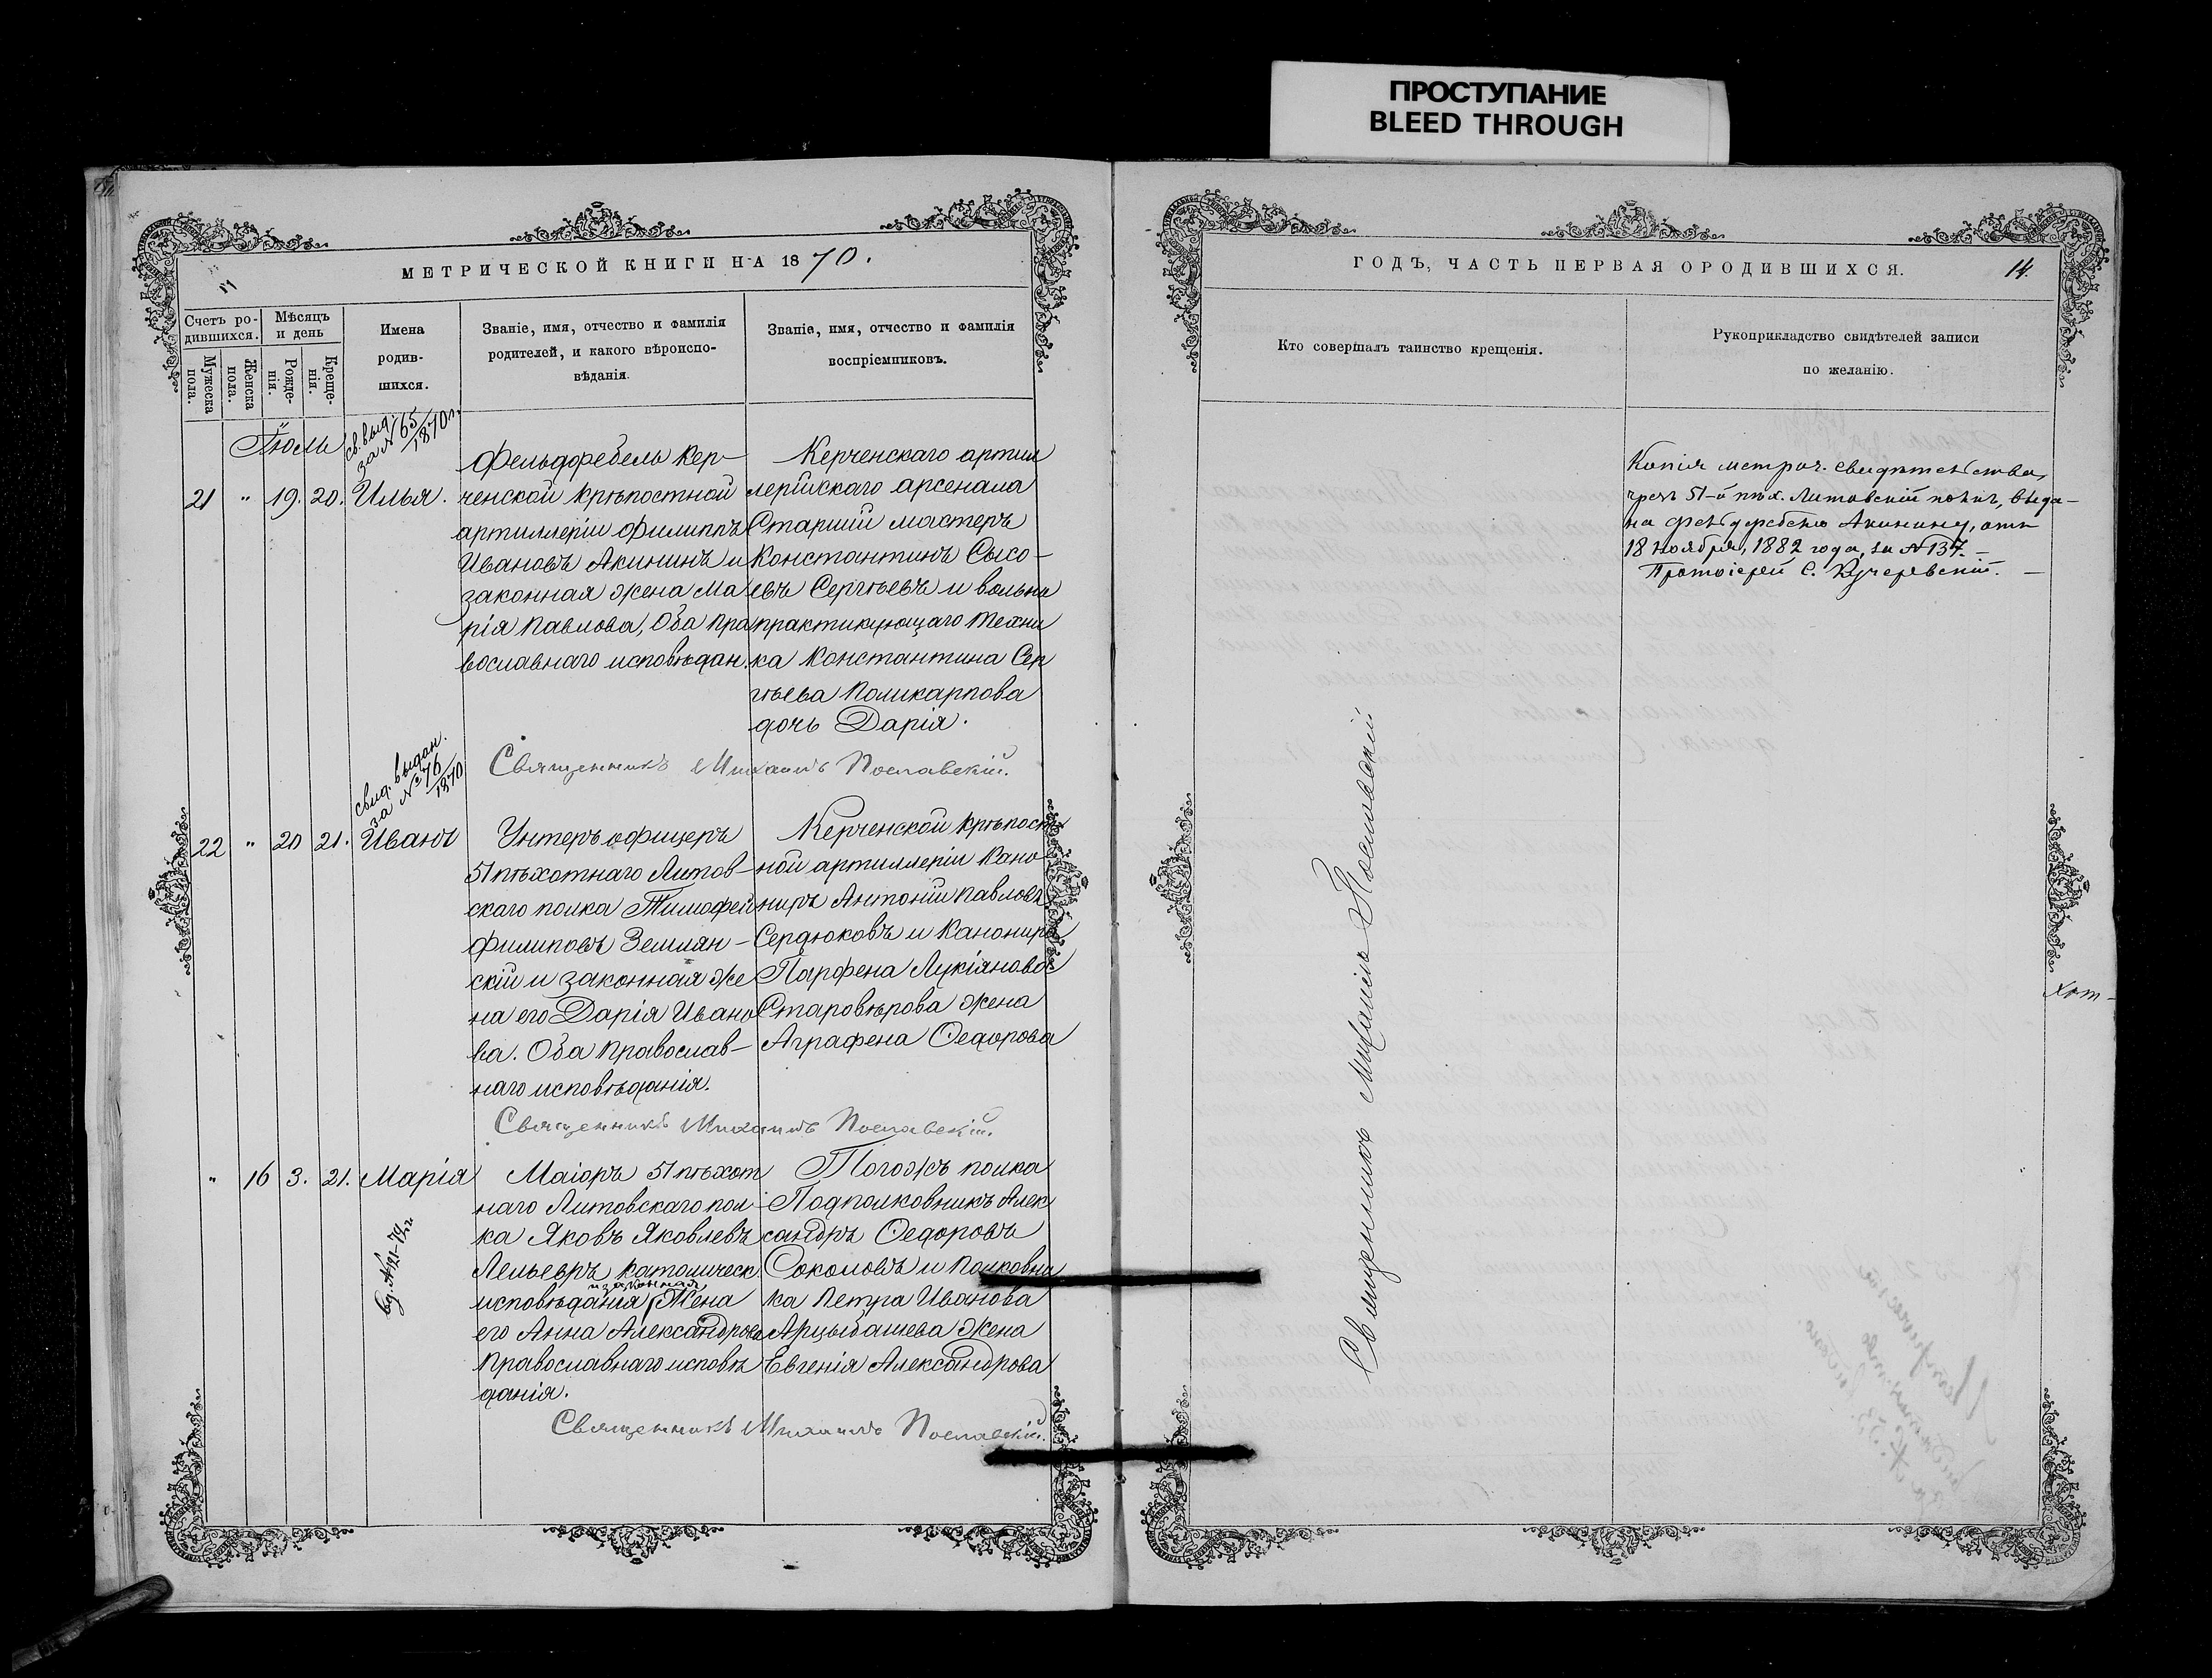 ПРОСТУПАНИЕ
BLEED THROUGH
МЕТРИЧЕСКОЙ КНИГИ НА 1870.
Счетъ ро-
дившихся.
Мужеска
пола.
Женска
пола.
Мѣсяцъ
и день
Рожде-
нія.
Креще-
нія.
Имена
родив-
шихся.
Званіе, имя, отчество и фамилія
родителей, и какого вѣроиспо-
вѣданія.
Званіе, имя, отчество и фамилія
воспріемниковъ.
Іюль
св. выд.
за № 65/1870 г.
21 " 19. 20. Илья.
Фельдфебель Кер-
ченской крѣпостной
артиллеріи Филиппъ
Ивановъ Акининъ и
законная жена Ма
рія Павлова, Оба пра
вославнаго исповѣдан.
Керченскаго артил
лерійскаго арсенала
Старшій мастеръ
Константинъ Сысо-
евъ Сергѣевъ и вольно
практикующаго техни
ка Константина Сер
гѣева Поликарпова
дочь Дарія.
Священникъ Михаилъ Пославскій.
свид. выдан.
за № 76/1870
22 " 20 21. Иванъ
Унтеръ офицеръ
51 пѣхотнаго Литов-
скаго полка Тимофей
Филиповъ Землян-
скій и законная же
на его Дарія Ивано
ва. Оба Православ-
наго исповѣданія.
Керченской крѣпост
ной артиллеріи Кано-
ниръ Антоній Павловъ
Сердюковъ и Канонира
Парфена Лукіянова
Старовѣрова жена
Аграфена Федорова
Священникъ Михаилъ Пославскій.
" 16 3. 21. Марія
Маіоръ 51 пѣхот
наго Литовскаго пол-
ка Яковъ Яковлевъ
Лельевръ католическ.
и законная
исповѣданія Жена
его Анна Александрова
Православнаго исповѣ
данія.
Тогожъ полка
Подполковникъ Алек
сандръ Федоровъ
Соколовъ и Полковни
ка Петра Иванова
Арцыбашева жена
Евгенія Александрова
Священникъ Михаилъ Пославскій.
ГОДЪ, ЧАСТЬ ПЕРВАЯ О РОДИВШИХСЯ.
14.
Кто совершалъ таинство крещенія.
Рукоприкладство свидѣтелей записи
по желанію.
Священникъ Михаилъ Пославскій
Копія метрич. свидѣтельства,
чрезъ 51-й пѣх. Литовскій полкъ, выда-
на фельдфебелю Акинину, отъ
18 ноября, 1882 года, за № 137. –
Протоіерей С. Кучеревскій. –